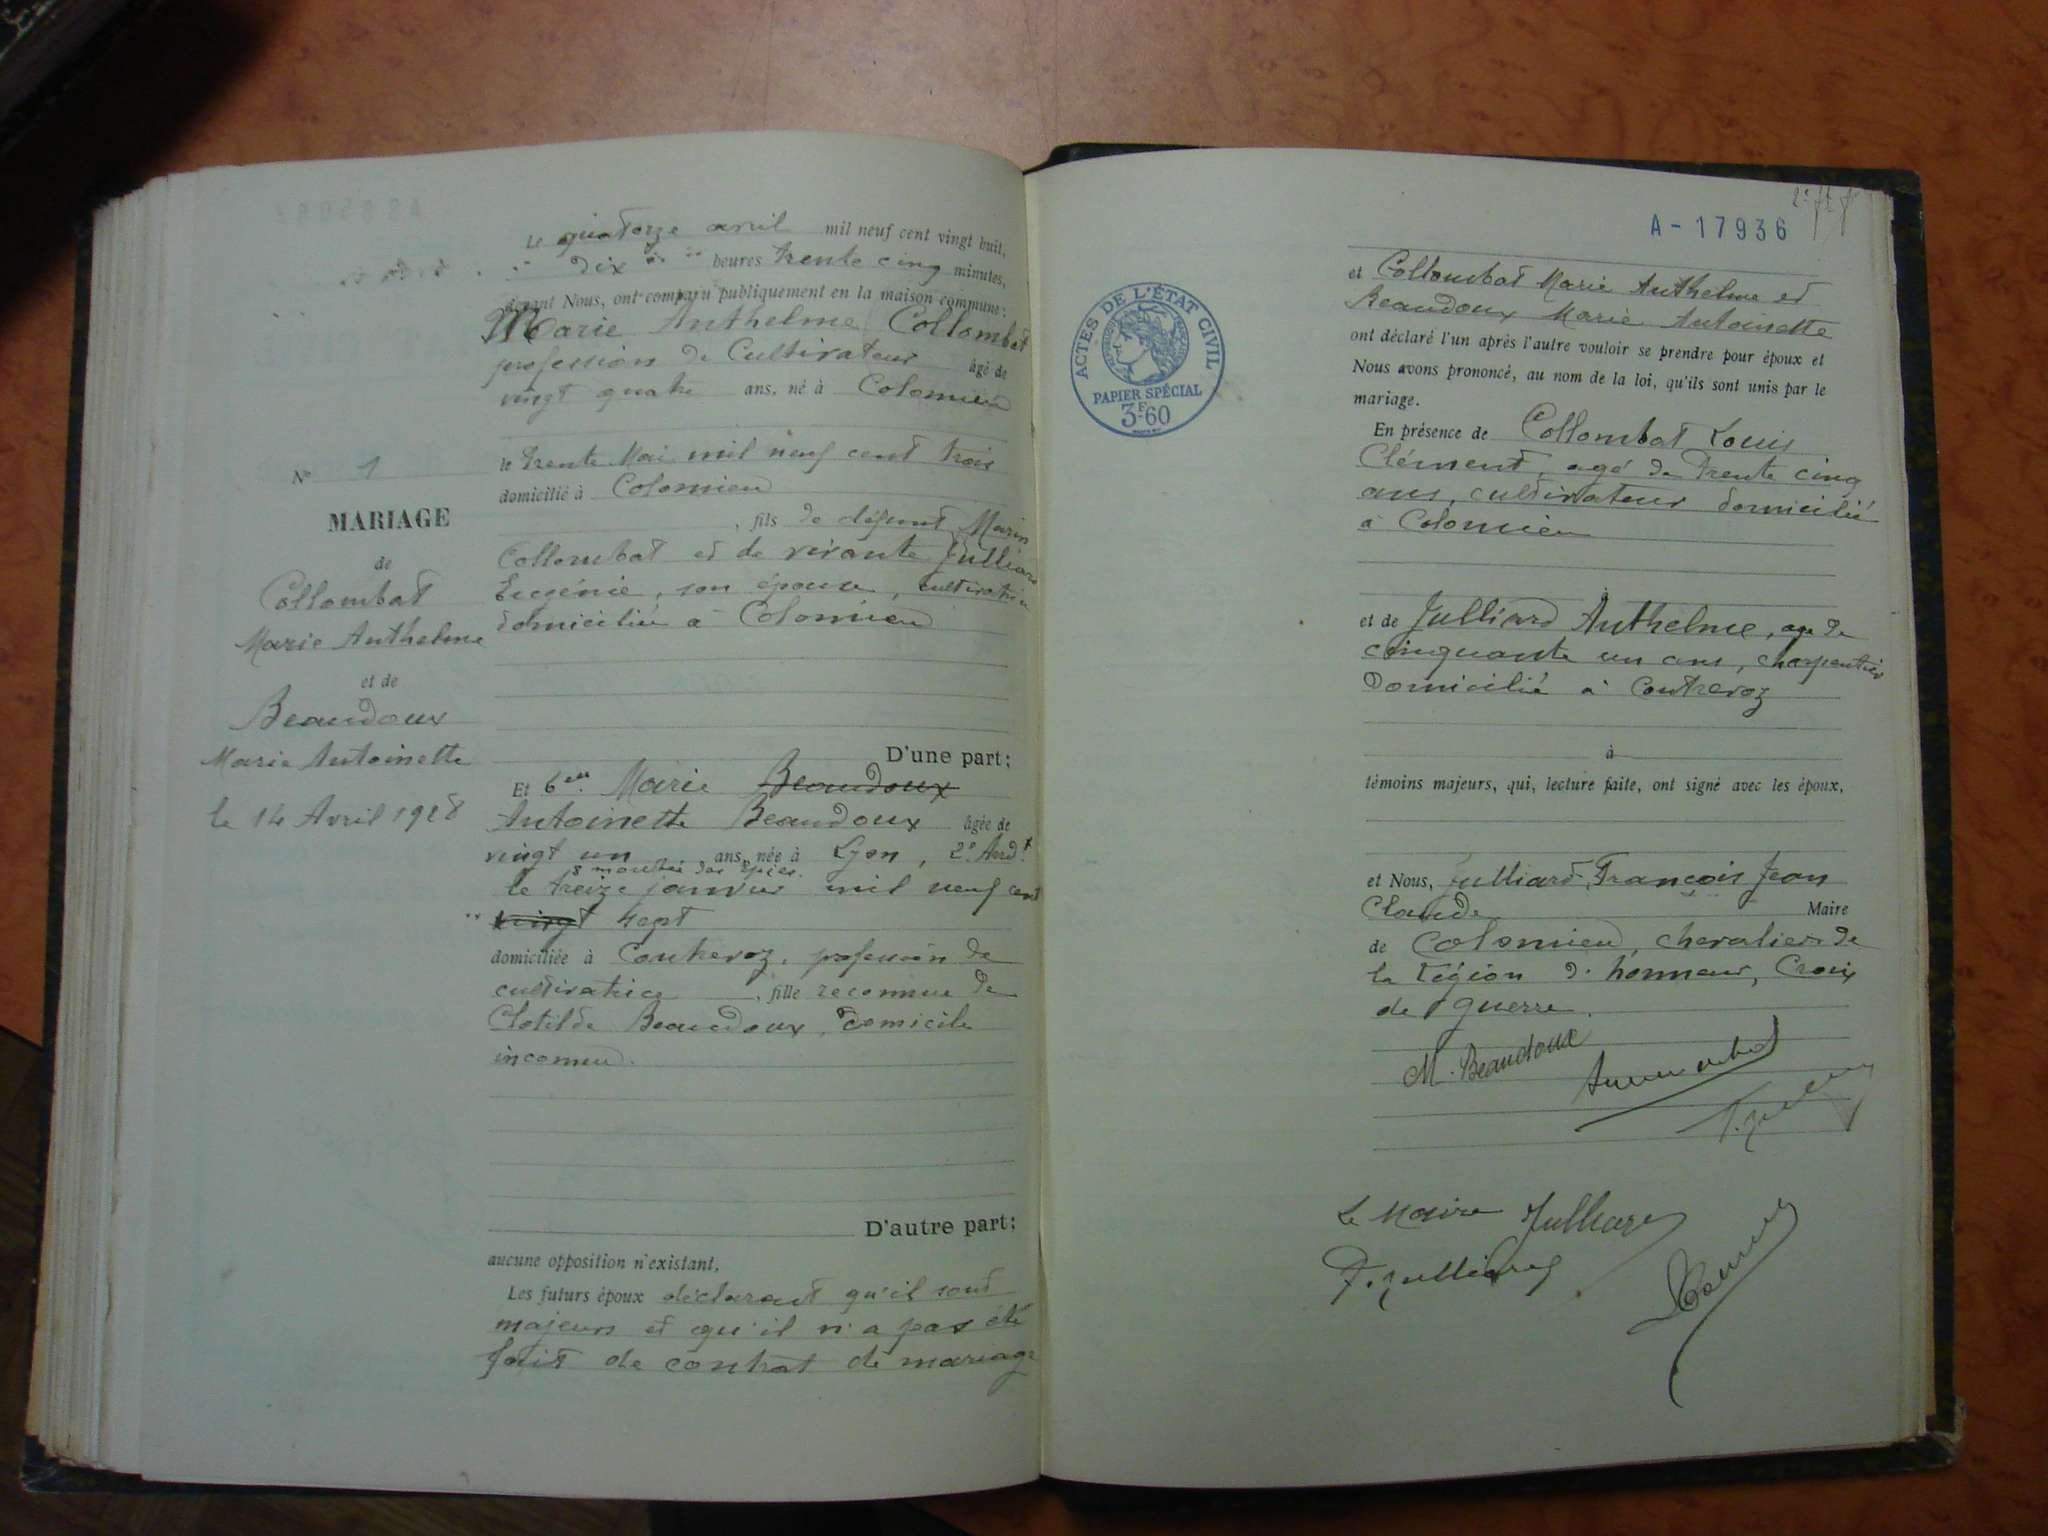 Le quatorze avril mil neuf cent vingt huit,
dix heures trente cinq minutes,
devant Nous, ont comparu publiquement en la maison commune :
Marie Anthelme Collombat
profession de Cultivateur âgé de
vingt quatre ans, né à Colomieu
le trente Mai mil neuf cent trois
domicilié à Colomieu
, fils de défunt Marin
Collombat et de vivante Julliard
Eugénie, son épouse, cultivatrice
domiciliée à Colomieu
N° 1
MARIAGE
de
Collombat
Marie Anthelme
et de
Beaudoux
Marie Antoinette
le 14 Avril 1928
D'une part :
Et Marie Beaudoux
Antoinette Beaudoux âgée de
vingt un ans, née à Lyon, 2e Arrdt
8 montée des
le treize janvier mil neuf cent
vingt sept
domiciliée à Contrevoz, profession de
cultivatrice, fille reconnue de
Clotilde Beaudoux, domicile
inconnu.
D'autre part :
aucune opposition n'existant,
Les futurs époux déclarant qu'il sont
majeurs et qu'il n'a pas été
fait de contrat de mariage
A-17936
ACTES DE L'ÉTAT CIVIL
PAPIER SPÉCIAL
3F60
et Collombat Marie Anthelme et
Beaudoux Marie Antoinette
ont déclaré l'un après l'autre vouloir se prendre pour époux et
Nous avons prononcé, au nom de la loi, qu'ils sont unis par le
mariage.
En présence de Collombat Louis
Clément, agé de trente cinq
ans, cultivateur domicilié
à Colomieu
et de Julliard Anthelme, age de
cinquante un ans, charpentier
Domicilié à Contrevoz
à
témoins majeurs, qui, lecture faite, ont signé avec les époux,
et Nous, Julliard, François Jean
Claude Maire
de Colomieu, chevalier de
la Légion d'honneur, Croix
de guerre.
M. Beaudoux
Le Maire Julliard
F. Julliard